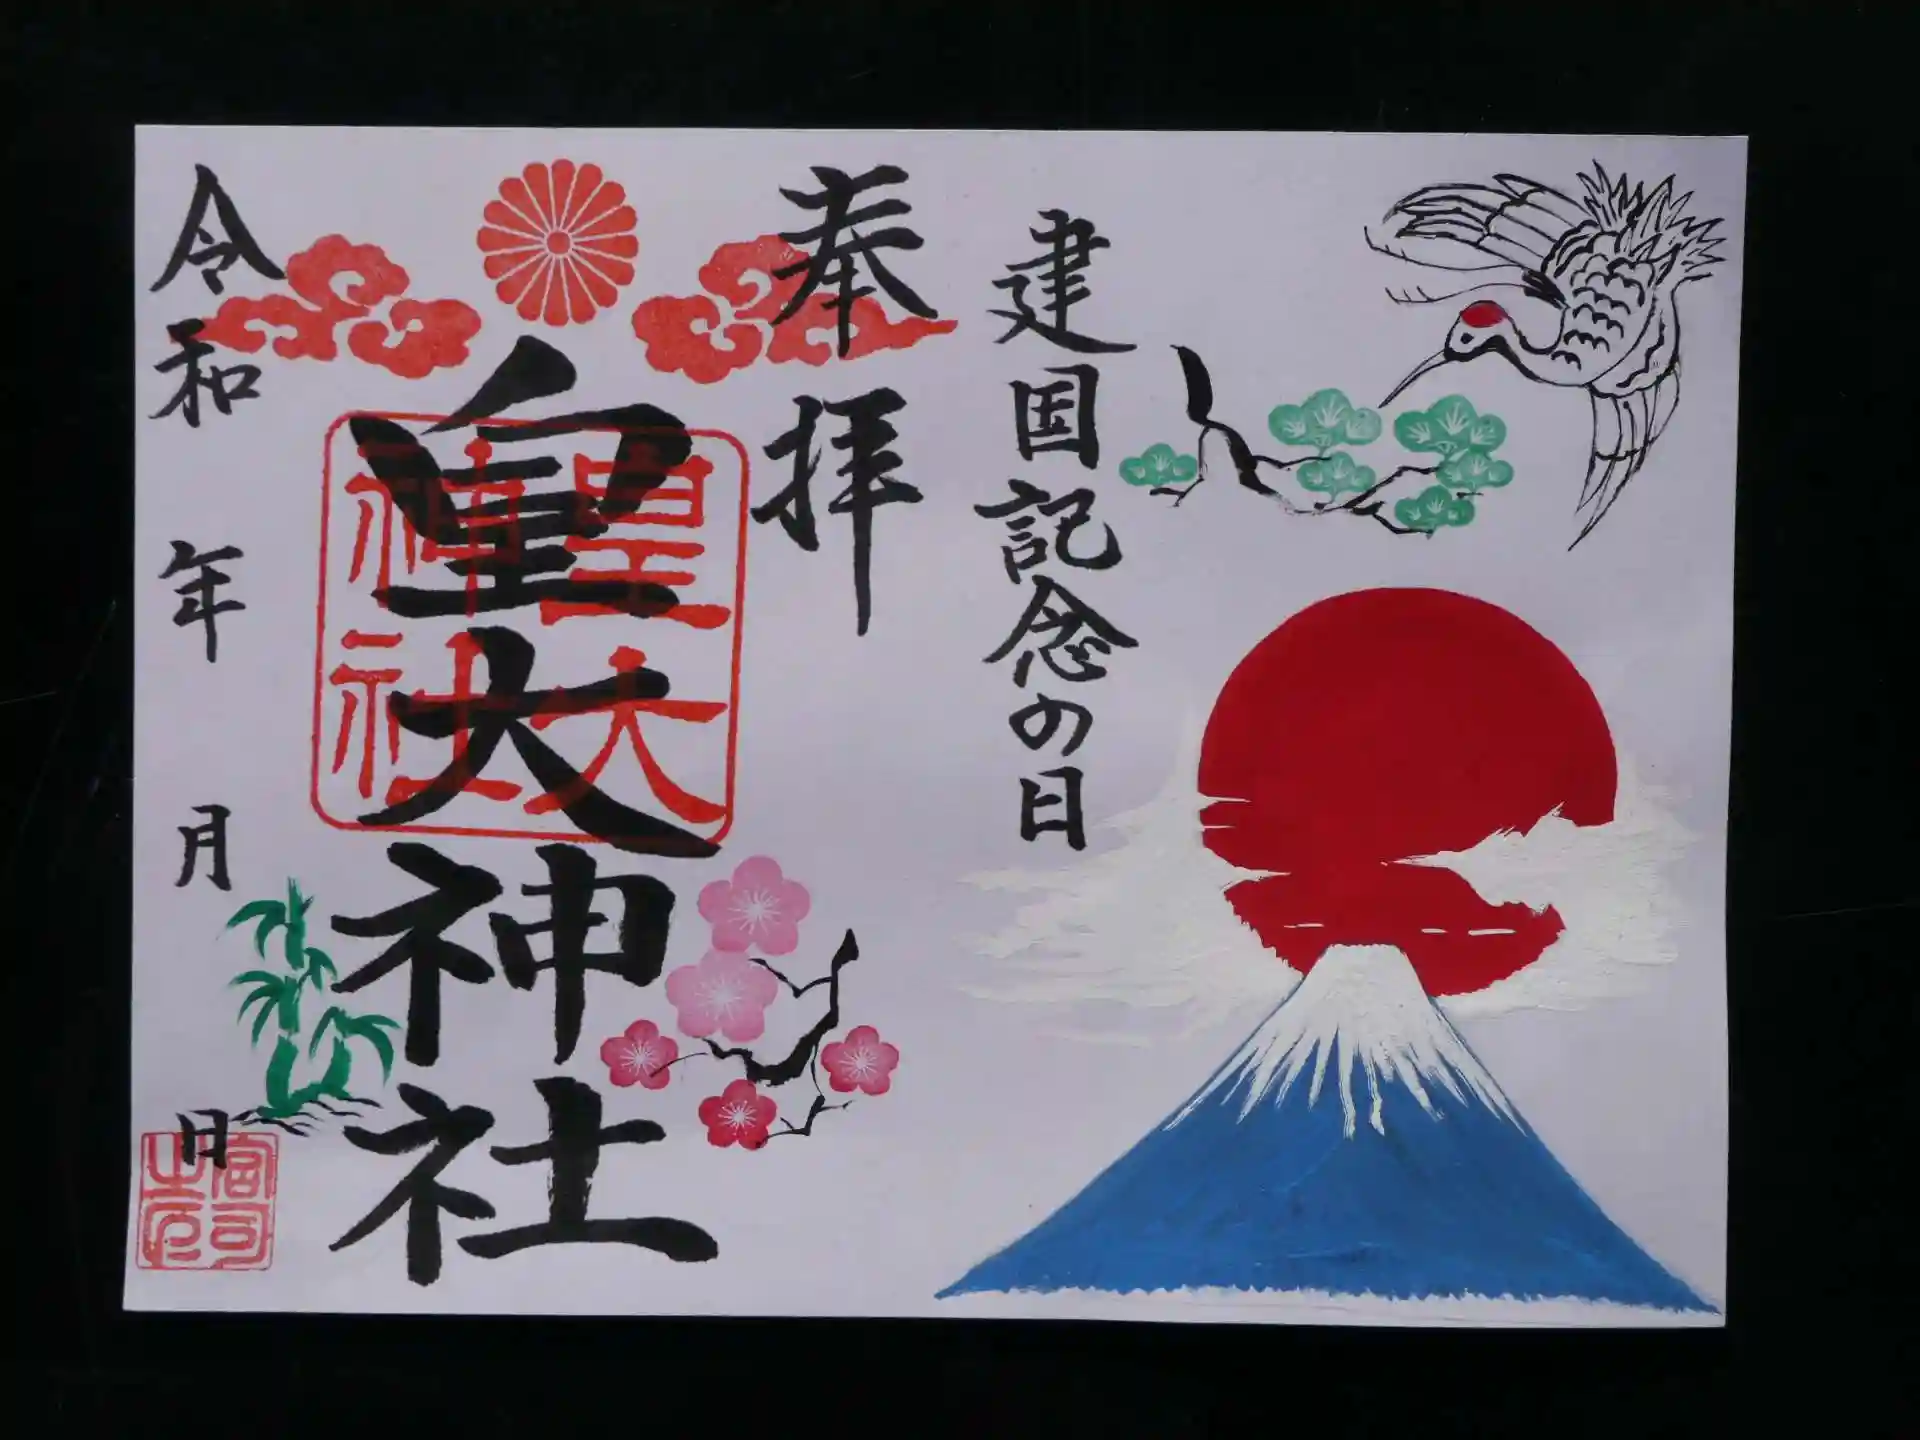 建国記念の日
奉拝
皇大神社
皇大
神社
令和 年 月 日
宮司
之印